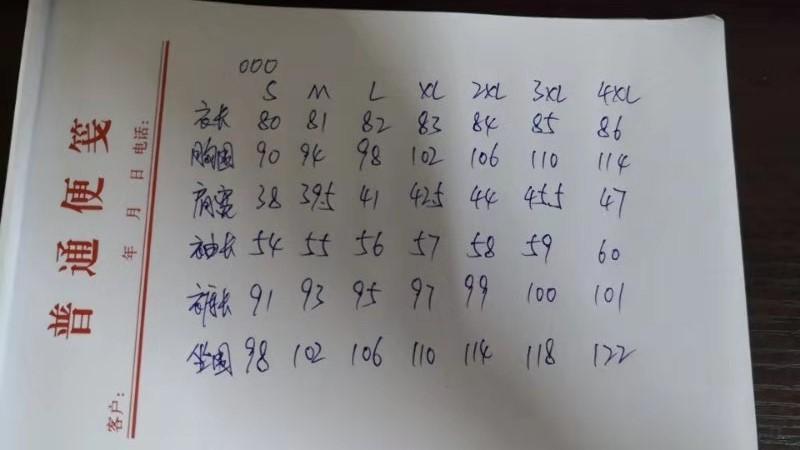 普通便笺
年 月 日 电话:
客户:
000
S M L XL 2XL 3XL 4XL
衣长 80 81 82 83 84 85 86
胸围 90 94 98 102 106 110 114
肩宽 38 39.5 41 42.5 44 45.5 47
袖长 54 55 56 57 58 59 60
裤长 91 93 95 97 99 100 101
坐围 98 102 106 110 114 118 122